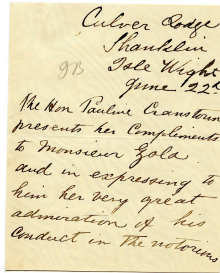 Culver Lodge
Shanklin
Isle Wight
June 22d
The Hon Pauline Cranstoun
presents her Compliments
to Monsieur Zola
and in expressing to
him her very great
admiration of his
conduct in the notorious